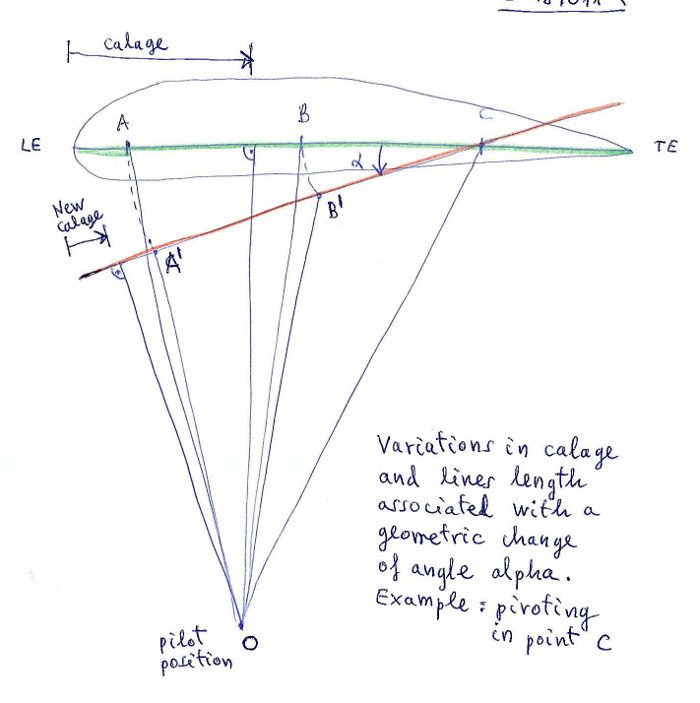 calage
A
B
C
LE
TE
α
New
calage
B'
A'
Variations in calage
and lines length
associated with a
geometric change
of angle alpha.
Example: pivoting
in point C
pilot
position
O